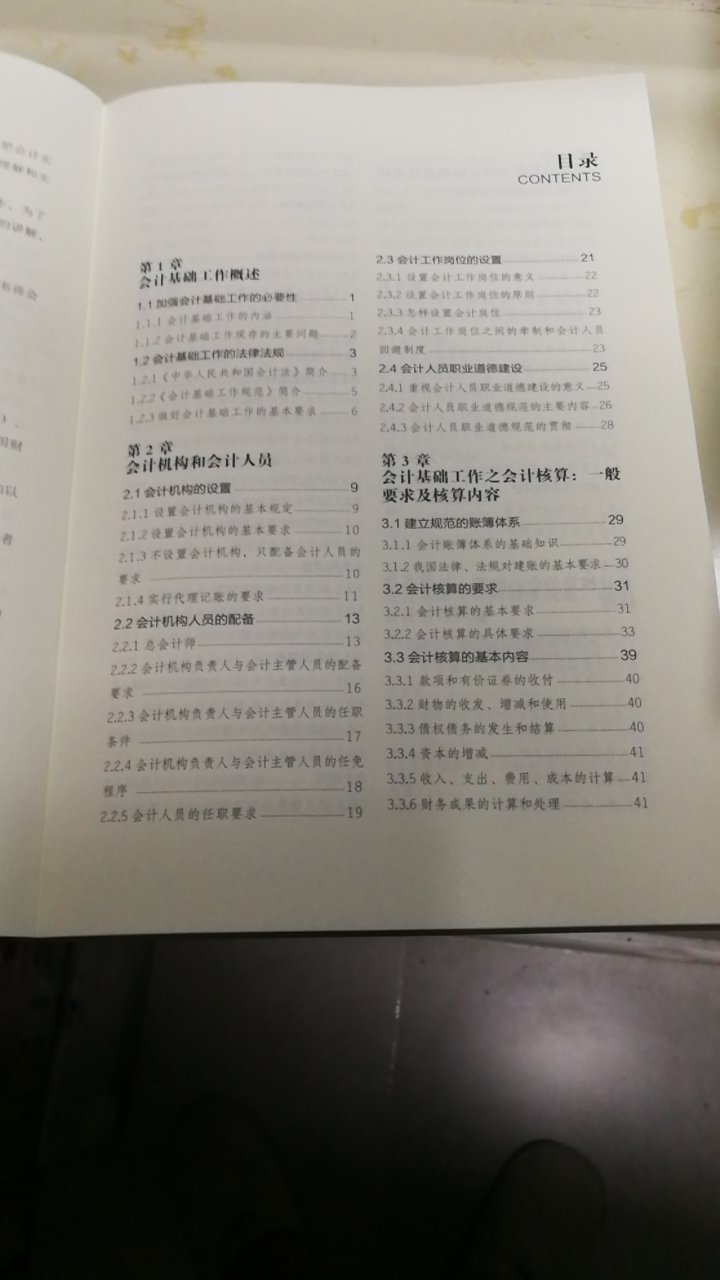 把会计实
理解和实
为了
的讲解、
目录
CONTENTS
第 1 章
会计基础工作概述
1.1 加强会计基础工作的必要性 1
1.1.1 会计基础工作的内涵 1
1.1.2 会计基础工作现存的主要问题 2
1.2 会计基础工作的法律法规 3
1.2.1《中华人民共和国会计法》简介 3
1.2.2《会计基础工作规范》简介 5
1.2.3 做好会计基础工作的基本要求 6
第 2 章
会计机构和会计人员
2.1 会计机构的设置 9
2.1.1 设置会计机构的基本规定 9
2.1.2 设置会计机构的基本要求 10
2.1.3 不设置会计机构，只配备会计人员的
要求 10
2.1.4 实行代理记账的要求 11
2.2 会计机构人员的配备 13
2.2.1 总会计师 13
2.2.2 会计机构负责人与会计主管人员的配备
要求 16
2.2.3 会计机构负责人与会计主管人员的任职
条件 17
2.2.4 会计机构负责人与会计主管人员的任免
程序 18
2.2.5 会计人员的任职要求 19
2.3 会计工作岗位的设置 21
2.3.1 设置会计工作岗位的意义 22
2.3.2 设置会计工作岗位的原则 22
2.3.3 怎样设置会计岗位 23
2.3.4 会计工作岗位之间的牵制和会计人员
回避制度 23
2.4 会计人员职业道德建设 25
2.4.1 重视会计人员职业道德建设的意义 25
2.4.2 会计人员职业道德规范的主要内容 26
2.4.3 会计人员职业道德规范的贯彻 28
第 3 章
会计基础工作之会计核算：一般
要求及核算内容
3.1 建立规范的账簿体系 29
3.1.1 会计账簿体系的基础知识 29
3.1.2 我国法律、法规对建账的基本要求 30
3.2 会计核算的要求 31
3.2.1 会计核算的基本要求 31
3.2.2 会计核算的具体要求 33
3.3 会计核算的基本内容 39
3.3.1 款项和有价证券的收付 40
3.3.2 财物的收发、增减和使用 40
3.3.3 债权债务的发生和结算 40
3.3.4 资本的增减 41
3.3.5 收入、支出、费用、成本的计算 41
3.3.6 财务成果的计算和处理 41